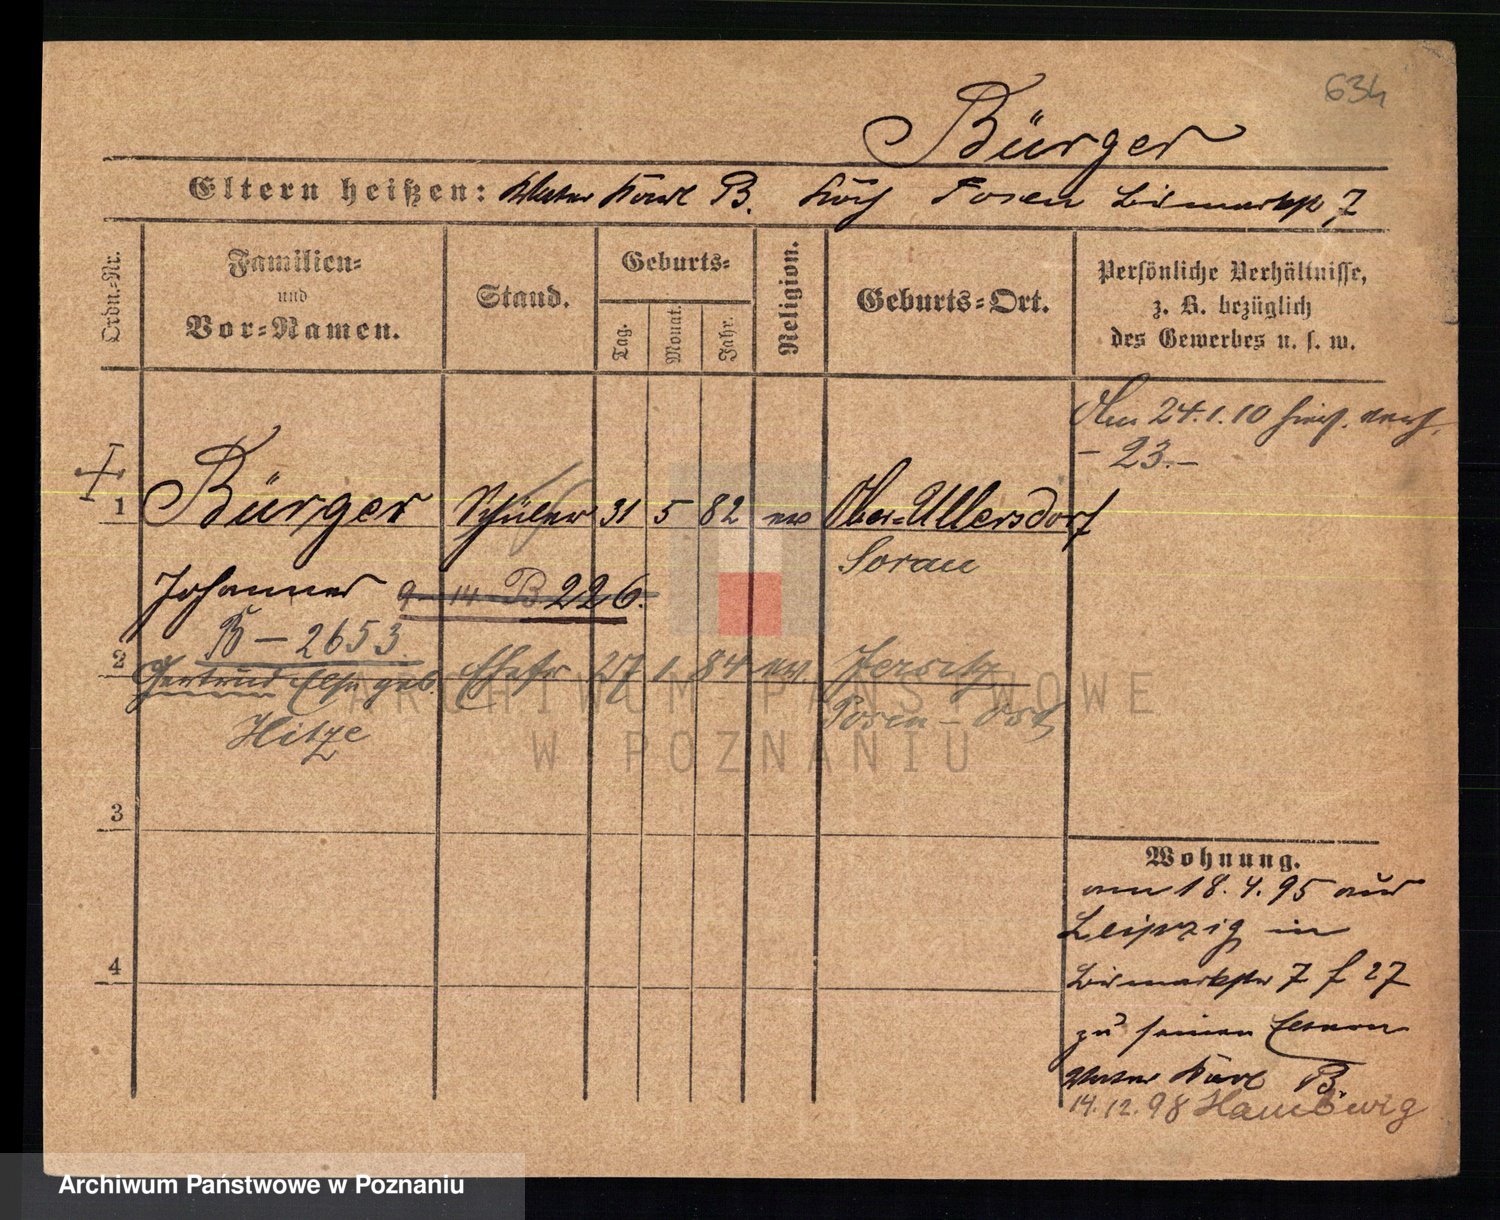 634
Bürger
Eltern heißen: Vater Karl B. Koch Posen Bismarkstr 7
Ordn.-Nr.
Familien-
und
Vor-Namen.
Stand.
Geburts-
Tag.
Monat.
Jahr.
Religion.
Geburts-Ort.
Persönliche Verhältnisse,
z. B. bezüglich
des Gewerbes u. s. w.
Am 24.1.10
- 23.-
1 Bürger Schüler 31 5 82 ev Ober-Ullersdorf
Sorau
Johannes 9 14 B 226.
B - 2653
2 Gertrud Else geb. Ehefr 27 1. 84 ev. Jersitz
Hitze Posen - Ost
3
4
Wohnung.
am 18.4.95 aus
Leipzig in
Bismarkstr 7 f 27
zu seinen Eltern
Vater Karl B.
14.12.98 Hamburg
ARCHIWUM PAŃSTWOWE
W POZNANIU
Archiwum Państwowe w Poznaniu